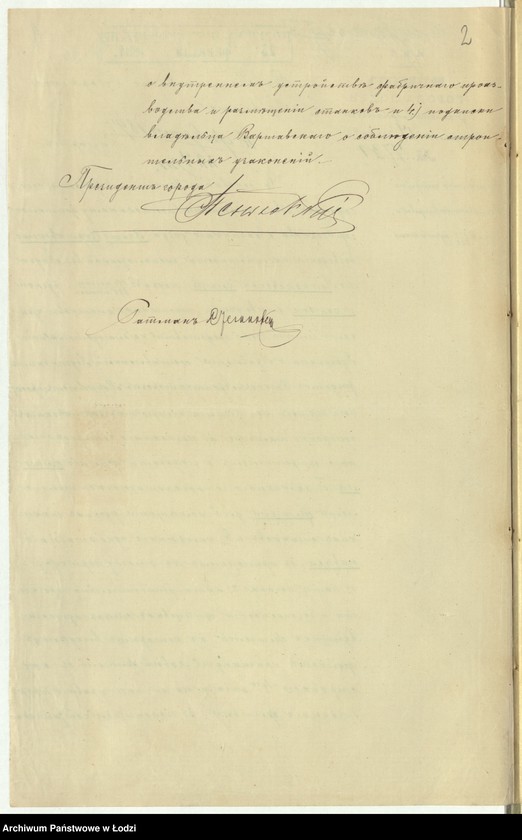 2
о внутреннемъ устройствѣ фабричнаго произ-
водства и размѣщеніи станковъ и 4) подписки
владѣльца Варшавскаго о соблюденіи строи-
тельныхъ узаконеній.
Президентъ города
Ратманъ
Archiwum Państwowe w Łodzi